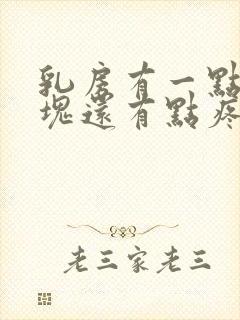 乳房有一點
塊還有點疼
老三家老三